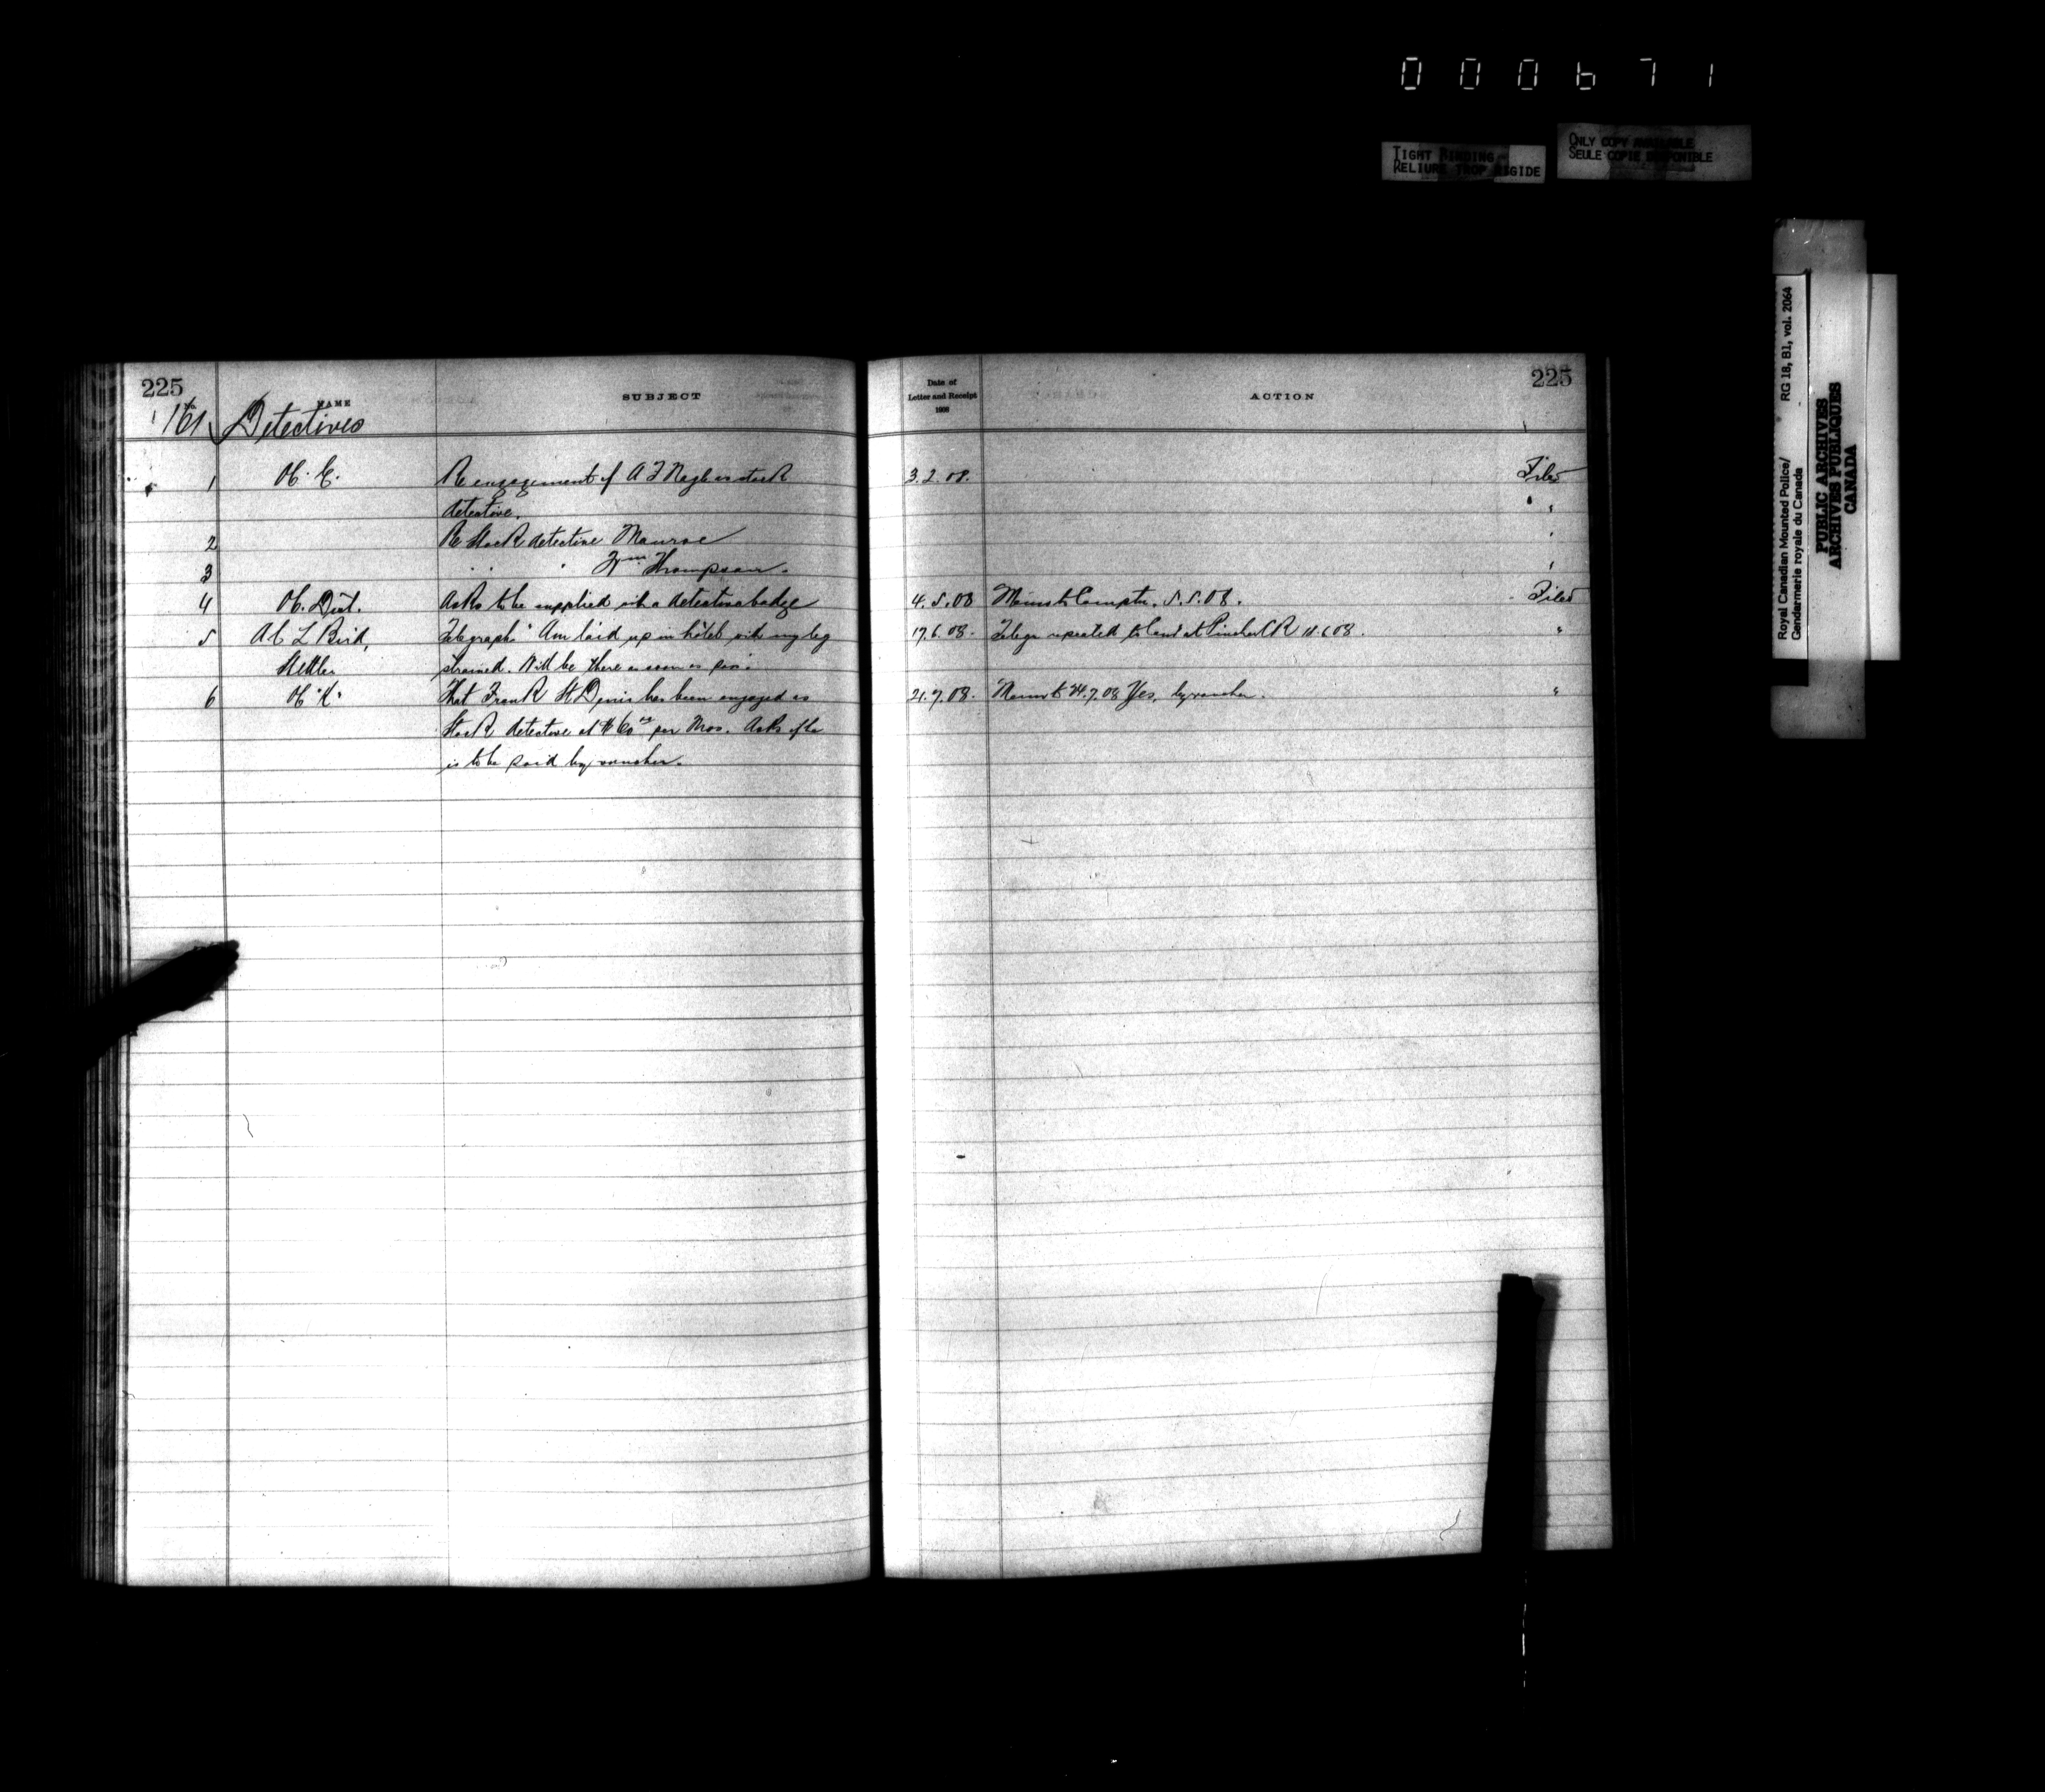 000671
TIGHT BINDING
RELIURE TROP RIGIDE
ONLY COPY AVAILABLE
SEULE COPIE DISPONIBLE
Royal Canadian Mounted Police/ RG 18, B1, vol. 2064
Gendarmerie royale du Canada
PUBLIC ARCHIVES
ARCHIVES PUBLIQUES
CANADA
225
No. NAME SUBJECT
161 Detectives
Date of
Letter and Receipt
1908
ACTION
225
1 Re engagement of A F Nagle as stock 3.2.08. Filed
detective. "
2 Re Stock detective Monroe "
3 " " Wm Thompson. "
4 Asks to be supplied with a detective badge 4.5.08 Memo to Comptr. 5.5.08. Filed
5 A C L Bird, Telegraphs "Am laid up in hotel with my leg 17.6.08. Telegr repeated to at Pincher CR .6.08. "
Stettler strained. Will be there as soon as pos."
6 "K" That Frank St Denis has been engaged as 21.7.08. Memo to 24.7.08 Yes, by voucher. "
Stock detective at $60 per Mos. Asks if he
is to be paid by voucher.